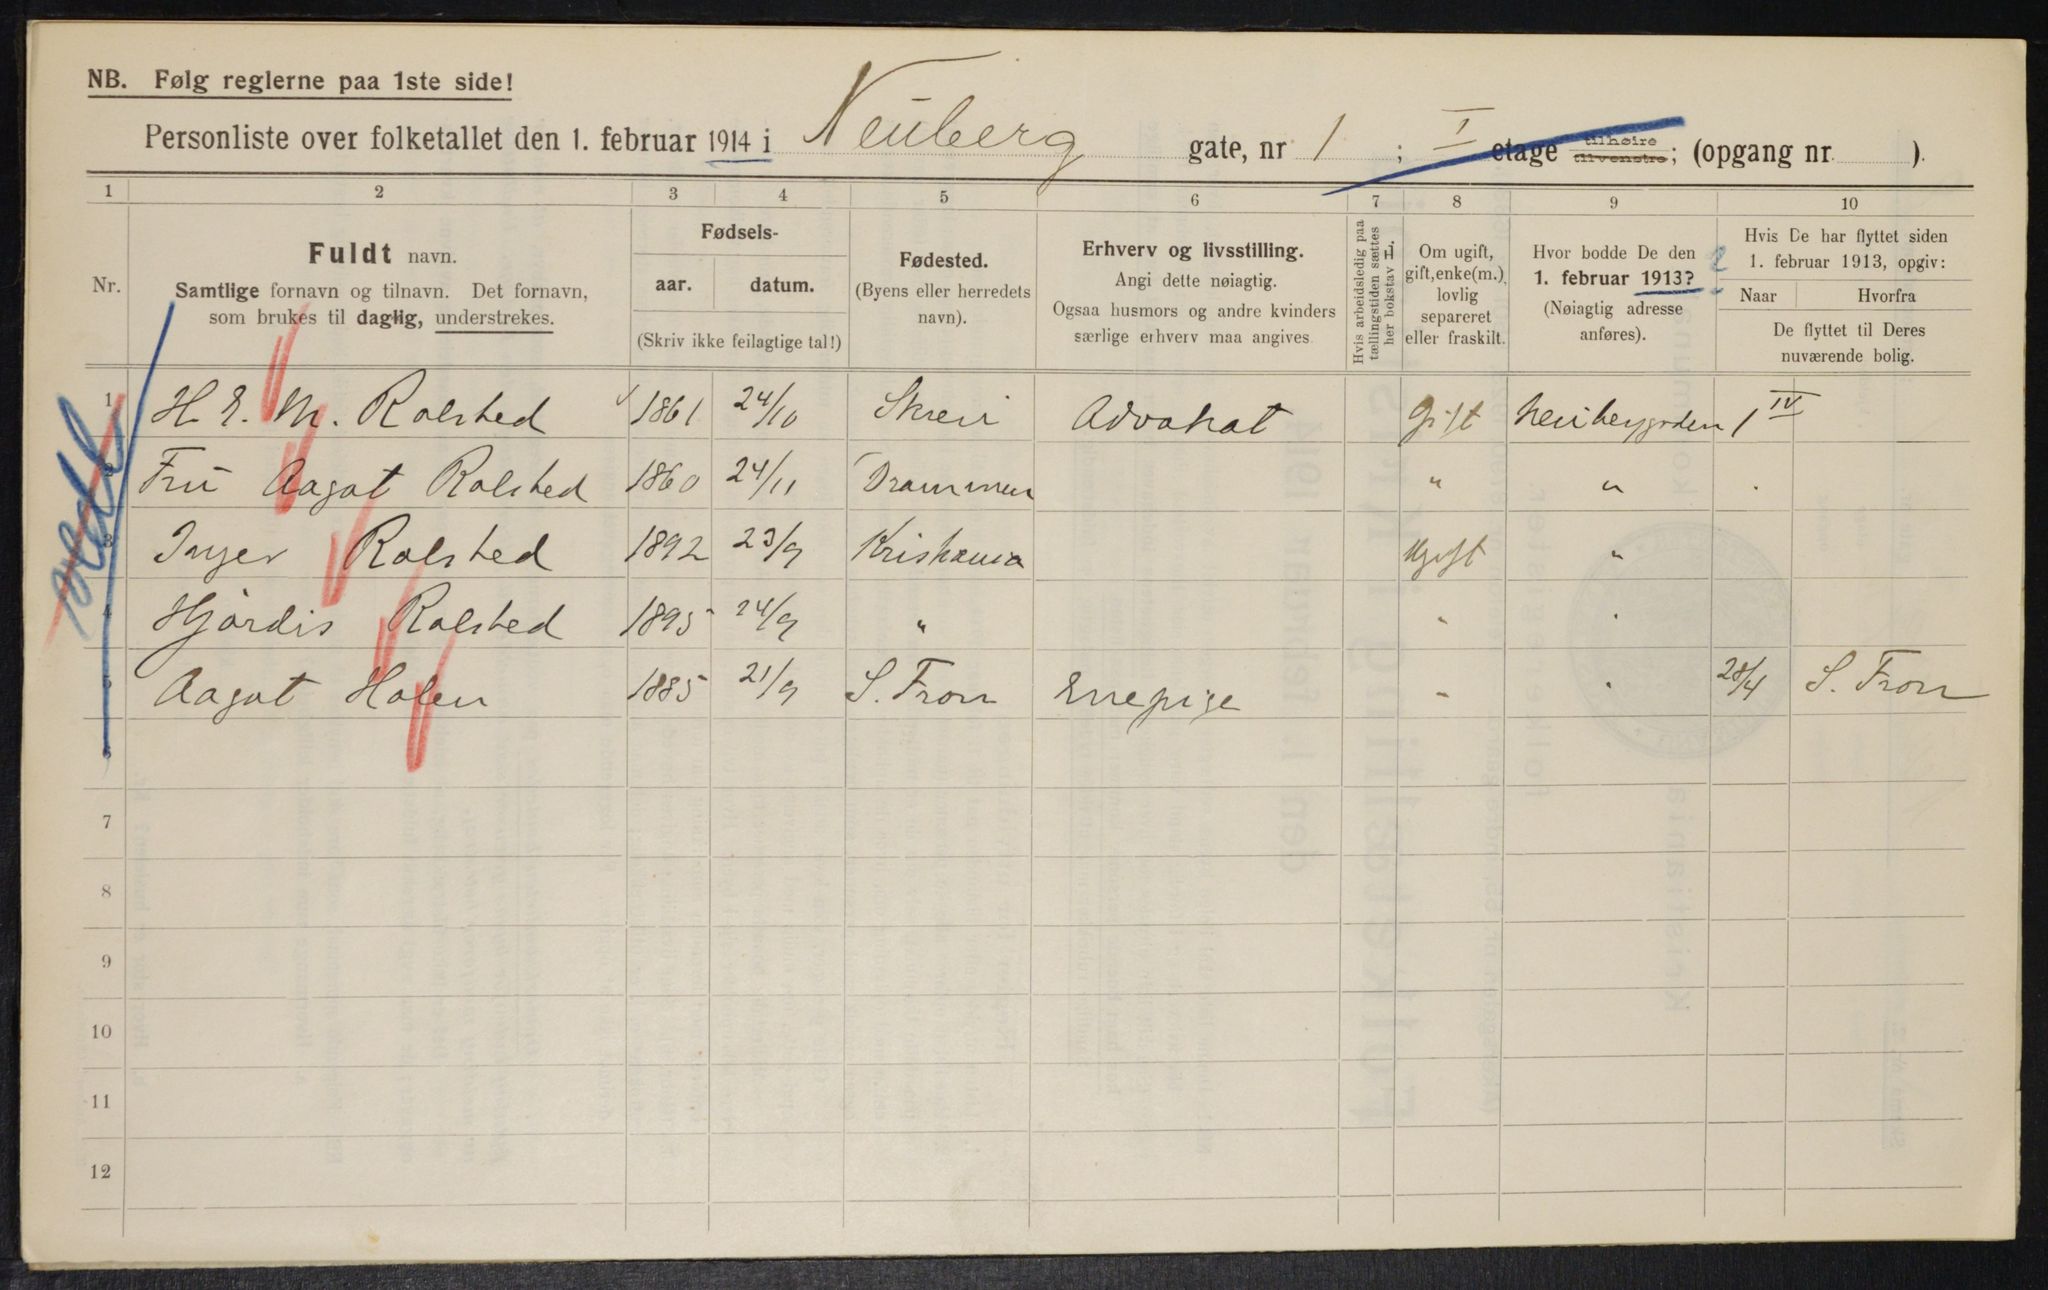 NB. Følg reglerne paa 1ste side!
Personliste over folketallet den 1. februar 1914 i Neuberg gate, nr 1 ; I etage tilhøire tilvenstre; (opgang nr ).
1 2 3 4 5 6 7 8 9 10
Nr.
Fuldt navn.
Samtlige fornavn og tilnavn. Det fornavn,
som brukes til daglig, understrekes.
Fødsels-
aar. datum.
(Skriv ikke feilagtige tal!)
Fødested.
(Byens eller herredets
navn).
Erhverv og livsstilling.
Angi dette nøiagtig.
Ogsaa husmors og andre kvinders
særlige erhverv maa angives
Hvis arbeidsledig paa
tællingstiden sættes
her bokstav L.
Om ugift,
gift, enke(m.),
lovlig
separeret
eller fraskilt.
Hvor bodde De den
1. februar 1913?
(Nøiagtig adresse
anføres).
Hvis De har flyttet siden
1. februar 1913, opgiv:
Naar Hvorfra
De flyttet til Deres
nuværende bolig.
1 H. E. M. Rolsted 1861 24/10 Skien Advokat Gift Neuberggaden 1 IV
2 Frü Aagot Rolsted 1860 24/11 Drammen " "
3 Inger Rolsted 1892 23/9 Kristiania Ugift "
4 Hjördis Rolsted 1895 24/9 " " "
5 Aagot Holen 1885 21/9 S. Fron Enepige " " 28/4 S. Fron
6
7
8
9
10
11
12